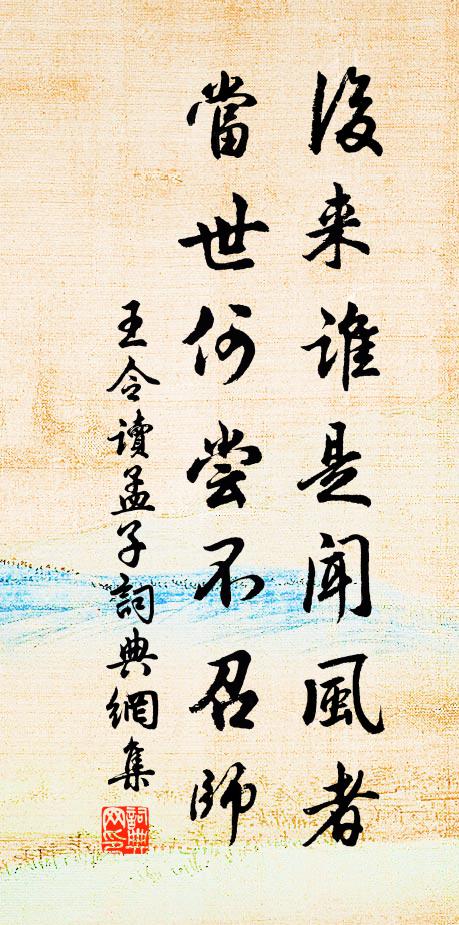 後来誰是聞風者
當世何嘗不召師
王令讀孟子詞典網集
詞典网印